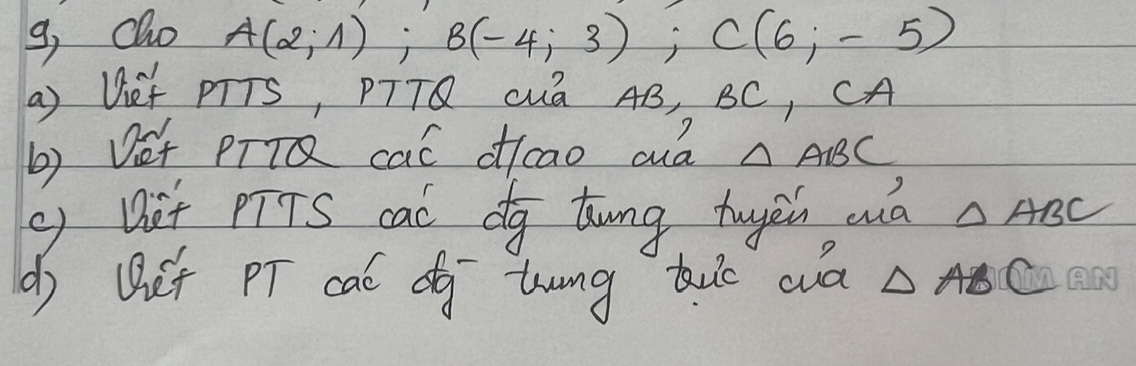 9, Cho A(2; 1) ; B(-4; 3) ; C(6; - 5)
a) Viết PTTS, PTTQ của AB, BC, CA
b) Viết PTTQ các đ/cao của Δ ABC
c) Viết PTTS các đg trung tuyến của Δ ABC
d) Viết PT các đg trung trực của Δ ABC